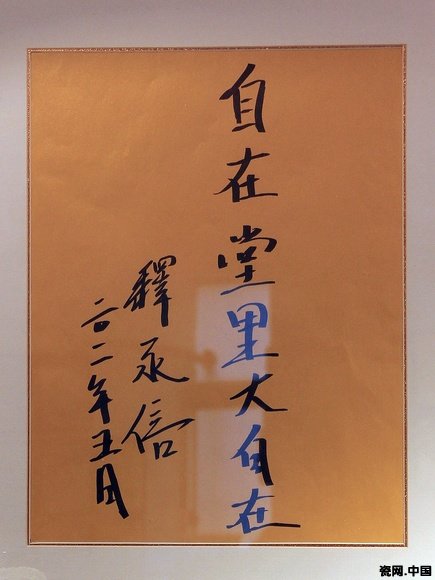 自在堂里大自在
釋永信
二〇一一年五月
瓷网.中国